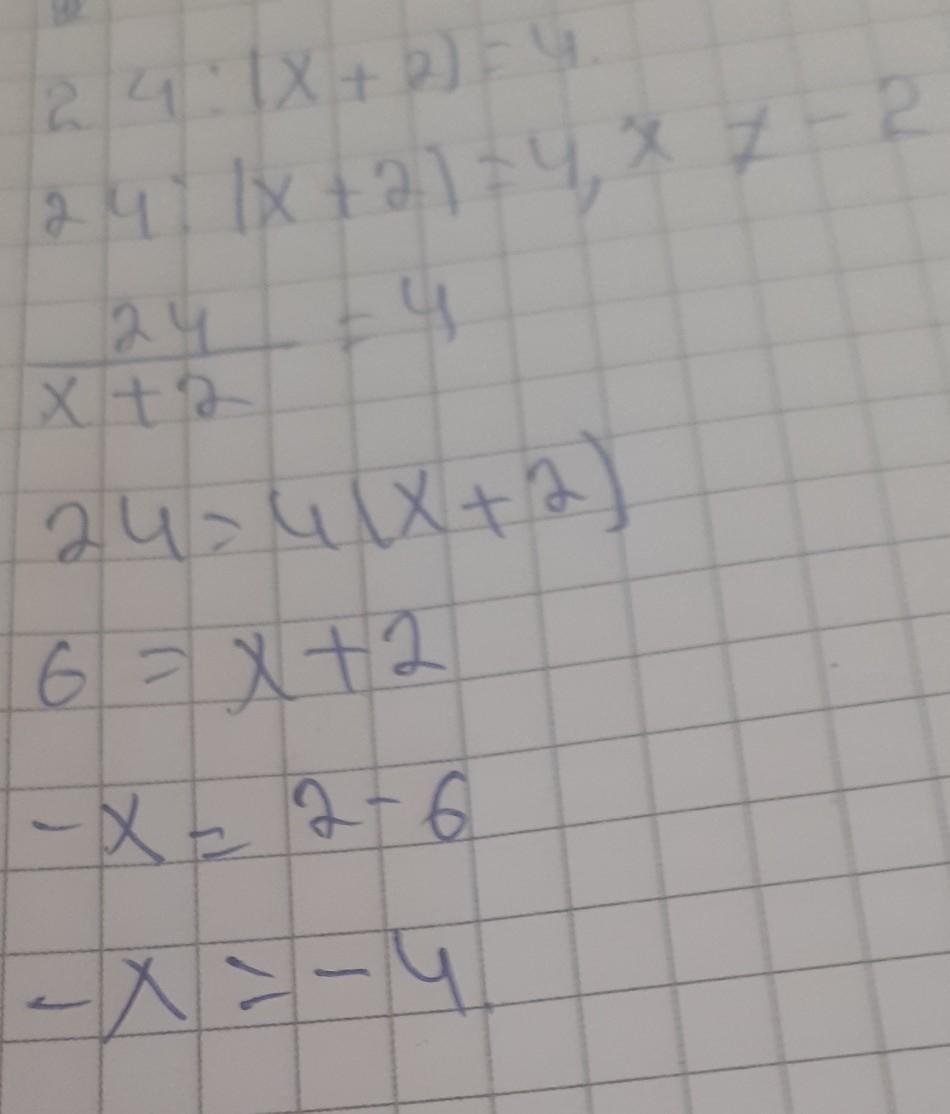 24:(x+2)=4
24:(x+2)=4, x ≠ -2
24/(x+2) = 4
24=4(x+2)
6 = x+2
-x = 2-6
-x = -4